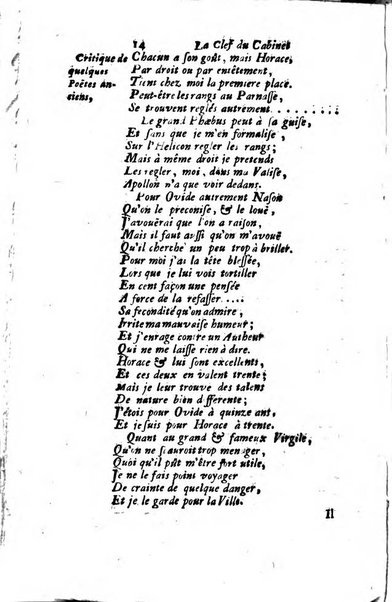 14 La Clef du Cabinet
Critique de quelques Poëtes anciens,
Chacun a son goût, mais Horace,
Par droit ou par entêtement,
Tient chez moi la premiere place.
Peut-être les rangs au Parnasse,
Se trouvent reglés autrement............
Le grand Phœbus peut à sa guise,
Et sans que je m'en formalise,
Sur l'Helicon regler les rangs;
Mais à même droit je pretends
Les regler, moi, dans ma Valise,
Apollon n'a que voir dedans.
Pour Ovide autrement Nason
Qu'on le preconise, & le louë,
J'avouërai que l'on a raison,
Mais il faut aussi qu'on m'avouë
Qu'il cherche un peu trop à briller.
Pour moi j'ai la tête blessée,
Lors que je lui vois tortiller
En cent façon une pensée
A force de la refasser ....
Sa fecondité qu'on admire,
Irrite ma mauvaise humeur;
Et j'enrage contre un Autheur
Qui ne me laisse rien à dire.
Horace & lui sont excellents,
Et ces deux en valent trente;
Mais je leur trouve des talent
De nature bien differente;
J'étois pour Ovide à quinze ant,
Et je suis pour Horace à trente.
Quant au grand & fameux Virgile,
Qu'on ne sauroit trop menager,
Quoi qu'il pût m'être fort utile,
Je ne le fais point voyager
De crainte de quelque danger,
Et je le garde pour la Ville.
Il